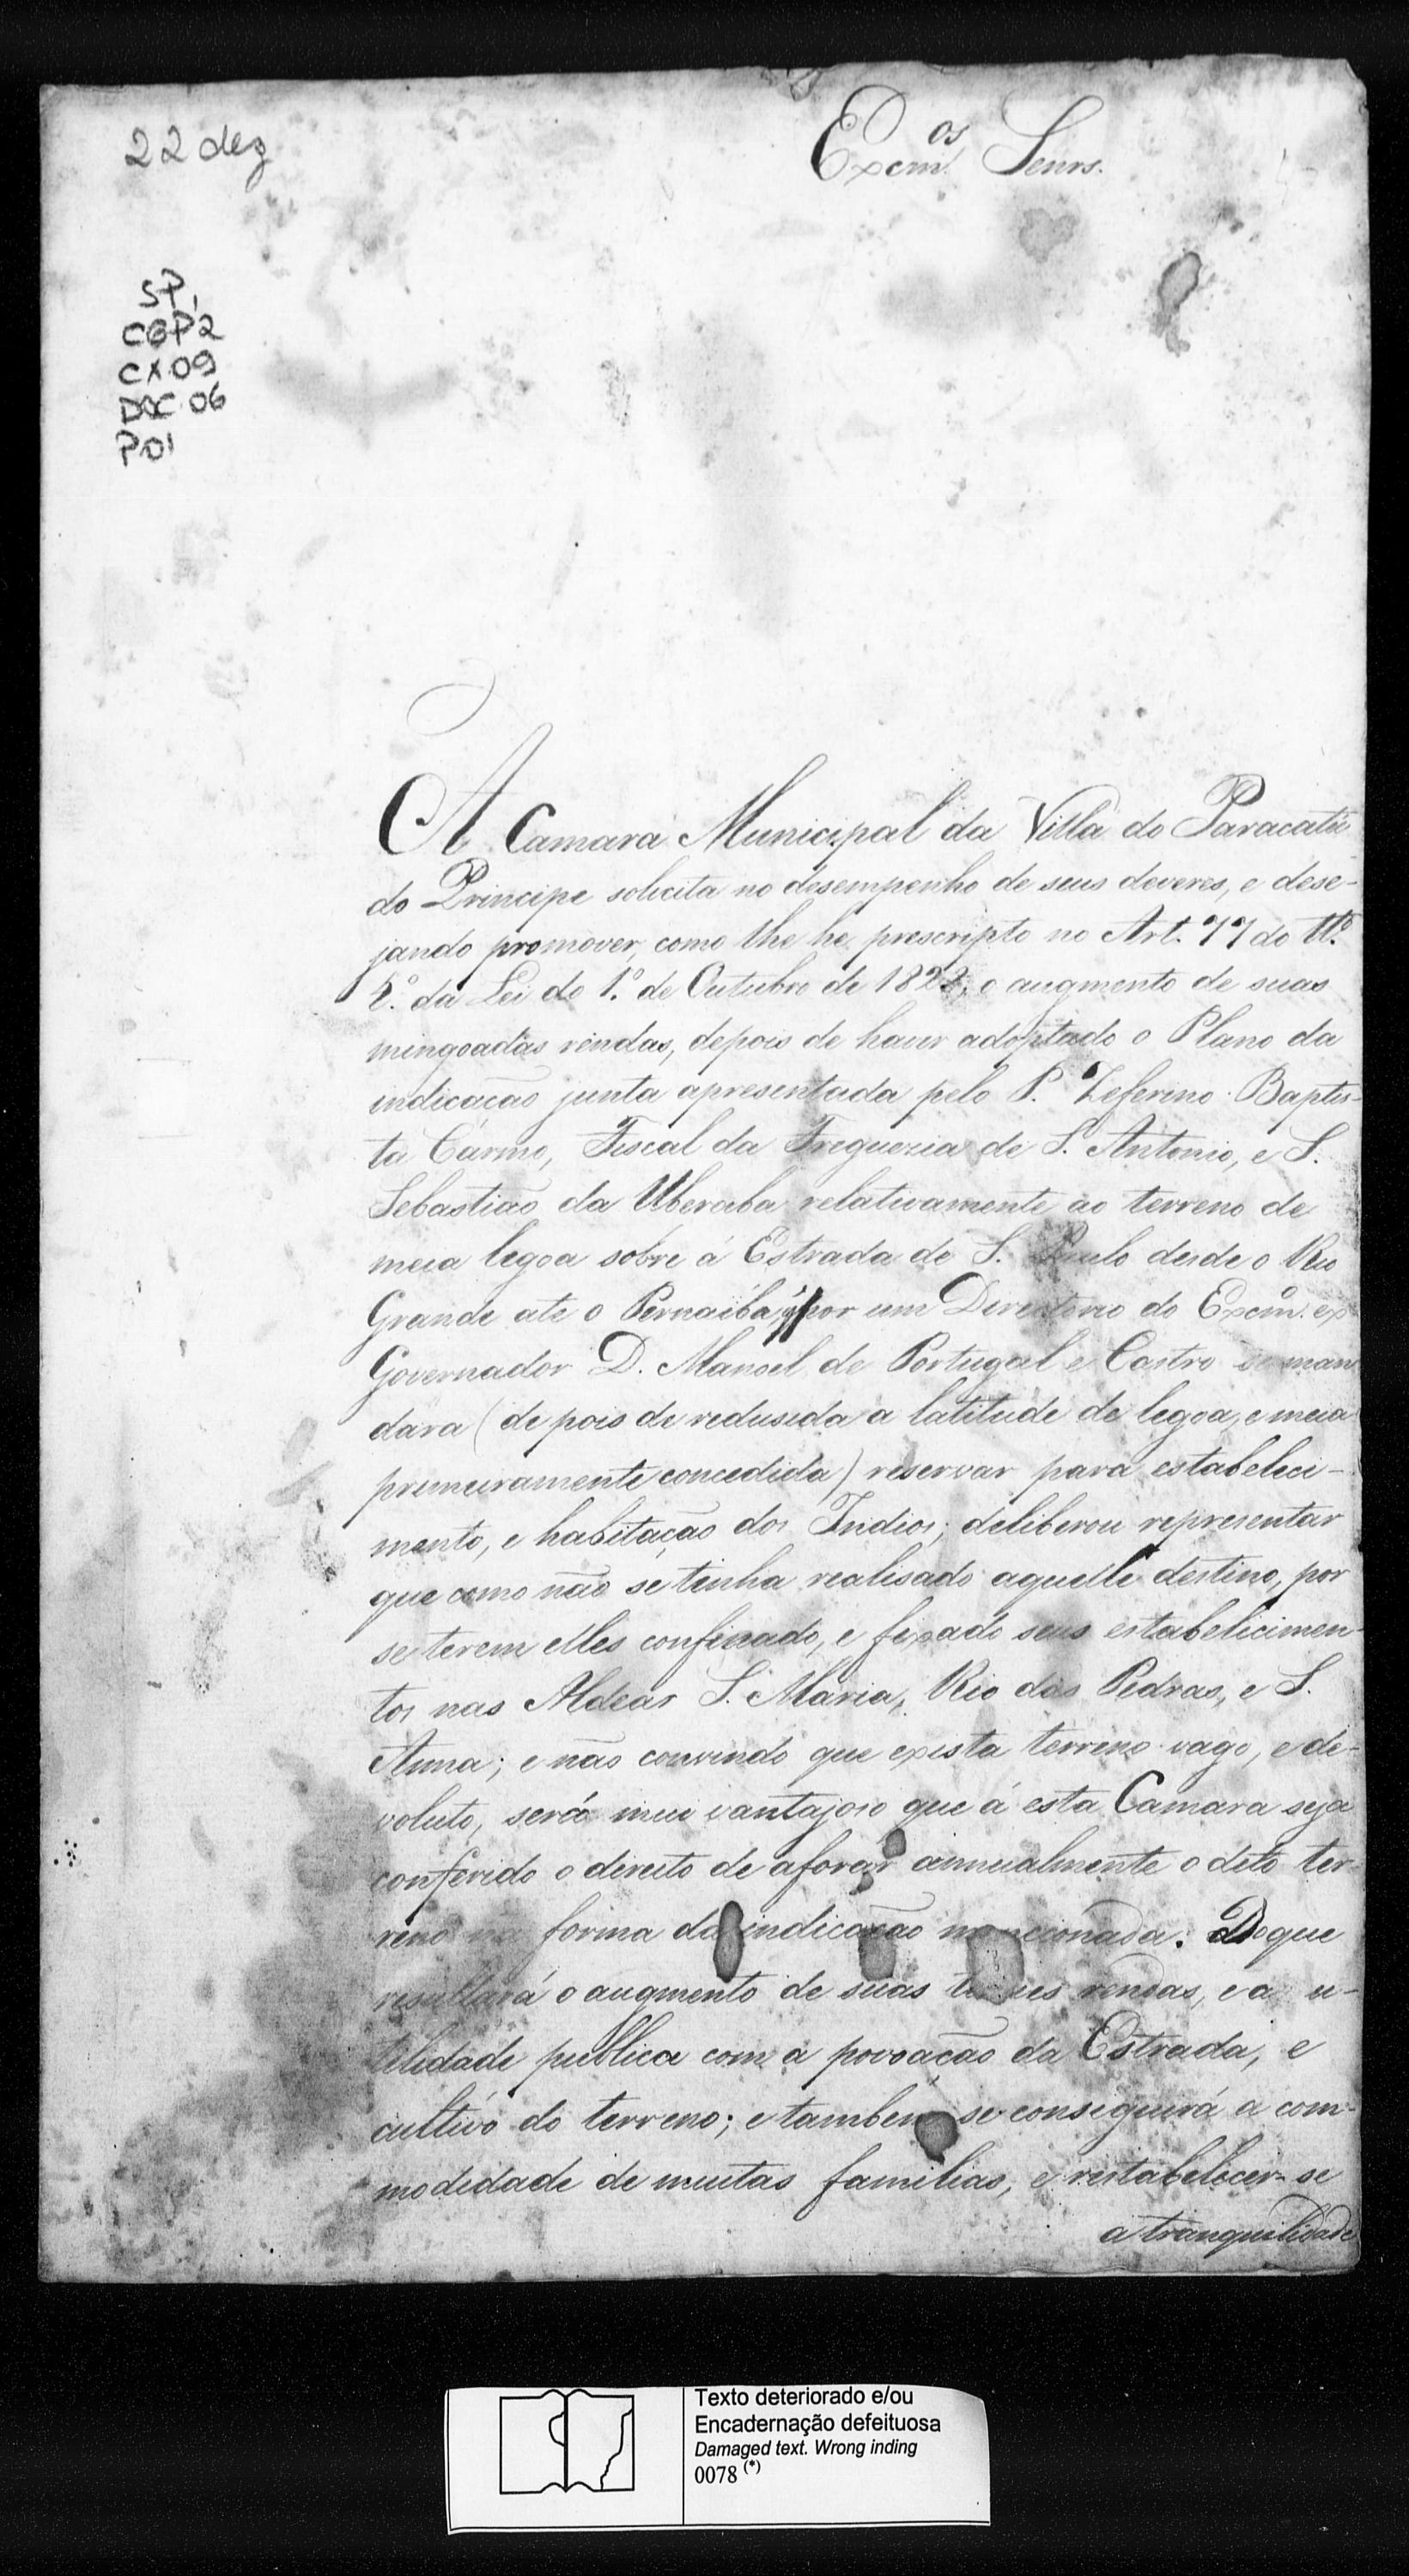 22 dez
Excm.os Senrs.
SP,
CGP2
CX.09
DOC.06
P.01
A Camara Municipal da Villa do Paracatú
do Principe solicita no desempenho de seus deveres, e dese-
jando promover, como lhe he prescripto no Art. 77 do tt.º
2.º da Lei do 1.º de Outubro de 1828, o augmento de suas
mingoadas rendas, depois de haver adoptado o Plano da
indicação junta apresentada pelo P. Zeferino Baptis-
ta Carmo, Fiscal da Freguezia de S. Antonio, e S.
Sebastião da Uberaba relativamente ao terreno de
meia legoa sobre á Estrada de S. Paulo desde o Rio
Grande ate o Pernaiba, q' por um Directorio do Excm.º ex
Governador D. Manoel de Portugal e Castro se man
dara (depois de redusida a latitude de legoa, e meia
primeiramente concedida) reservar para estabeleci-
mento, e habitação dos Indios; deliberou representar
que como não se tinha realisado aquelle destino, por
se terem elles confinado, e fixado seus estabelicimen-
tos nas Aldeas S. Maria, Rio das Pedras, e S.
Anna; e não convindo que exista terreno vago, e de-
voluto, será mui vantajoso que á esta Camara seja
conferido o direito de aforar annualmente o dito ter-
reno na forma da indicação mencionada. Do que
resultará o augmento de suas tenues rendas, e a u-
tilidade publica com a povoação da Estrada, e
cultivo do terreno; e tambem se conseguirá a com-
modidade de muitas familias, e restabelecer-se
a tranquilidade
Texto deteriorado e/ou
Encadernação defeituosa
Damaged text. Wrong inding
0078 (*)